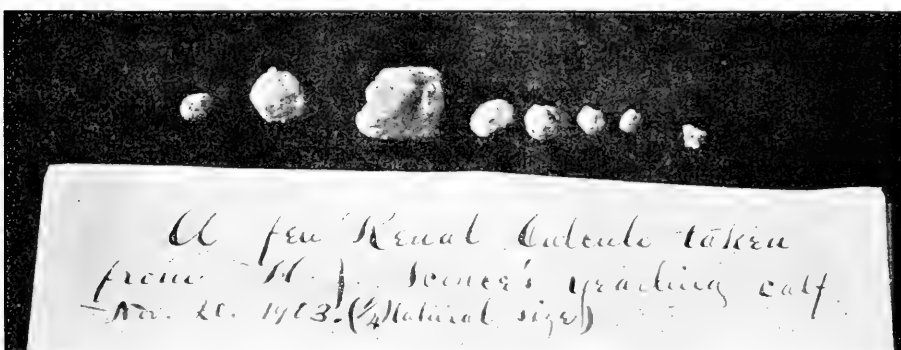 A few Renal Calculi taken
from H. J. yearling calf.
Nov. 1903. (1/4 Natural size)